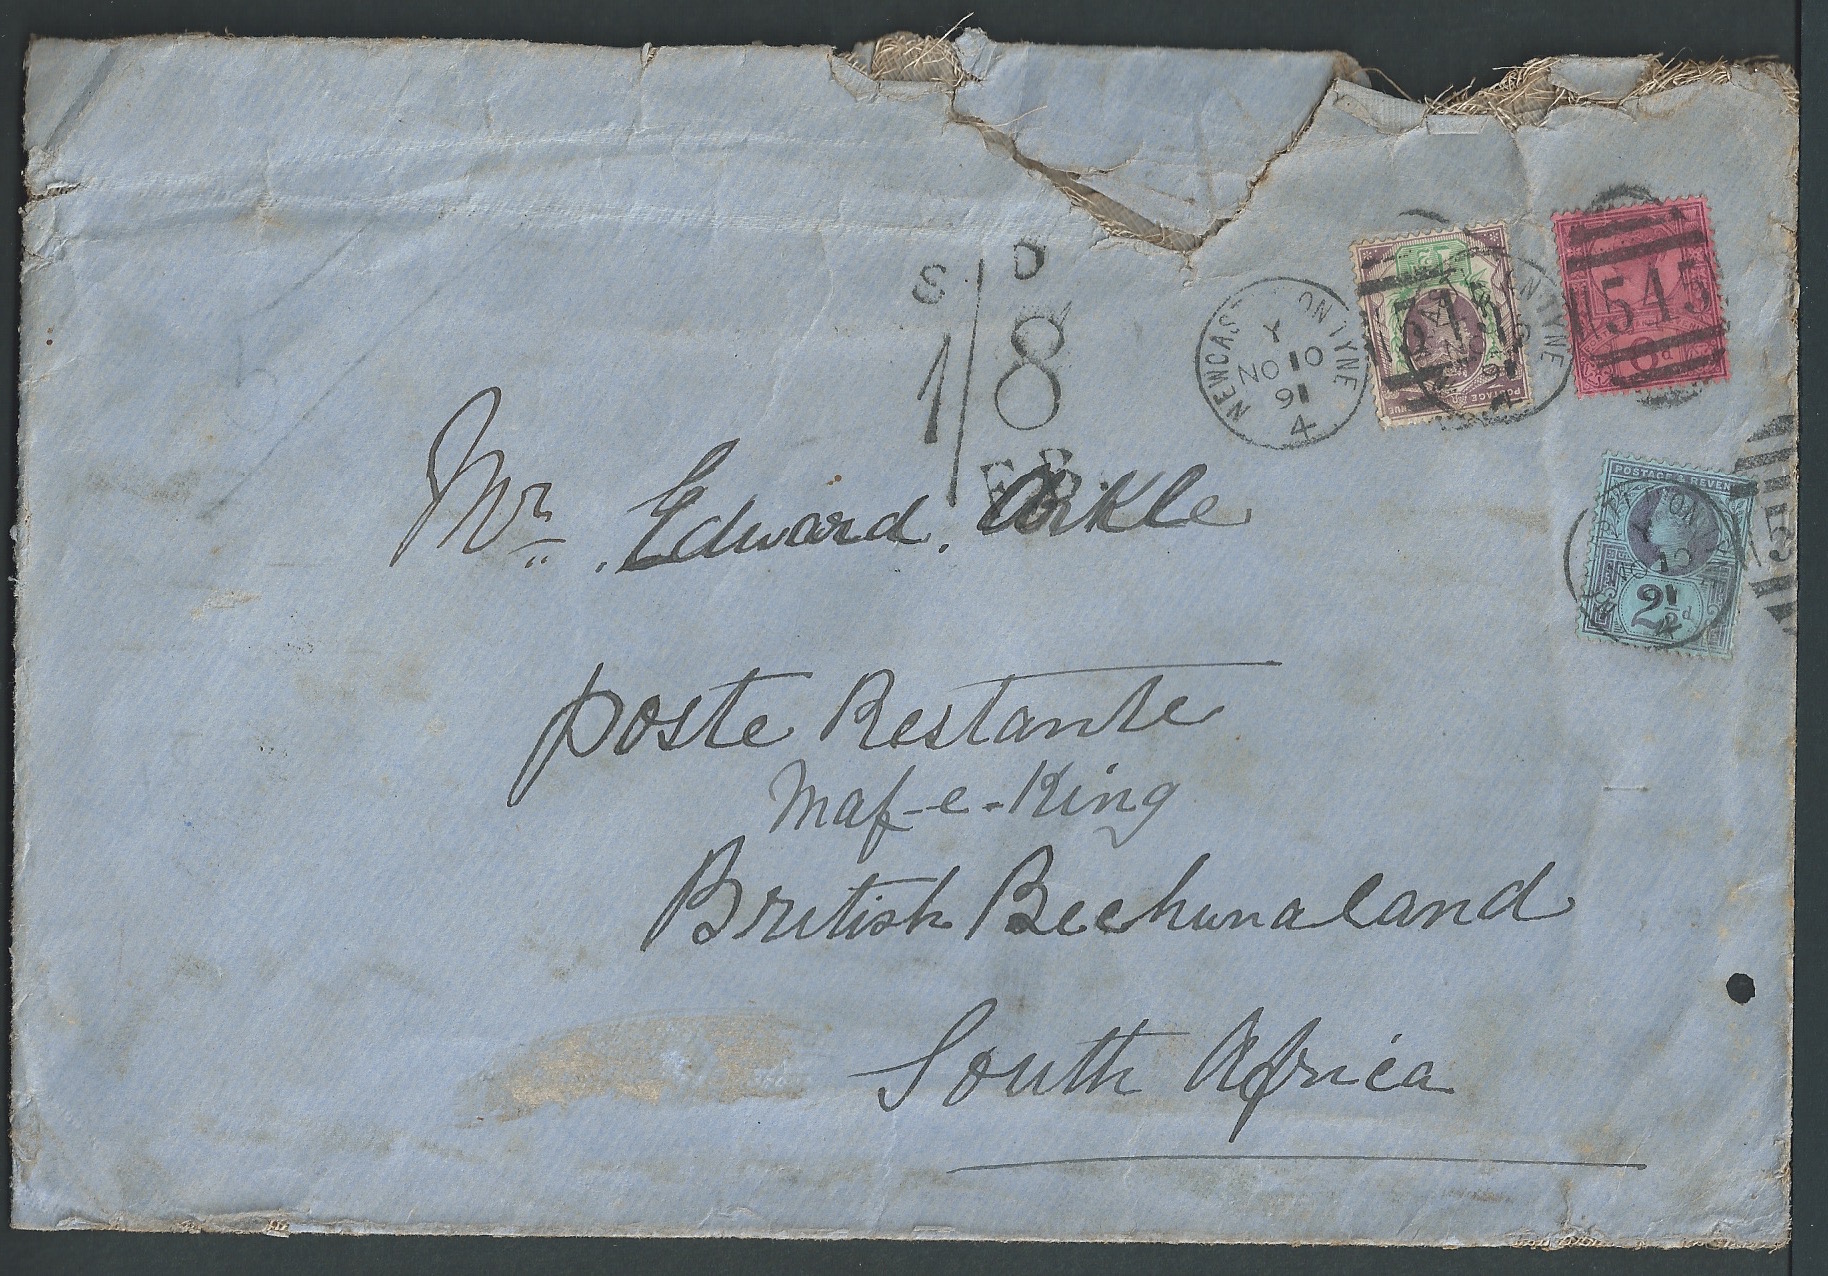 S D
1/8
F.B.
NEWCAST ON TYNE
Y
NO 10
91
4
545
545
6d
POSTAGE & REVEN
2½d
Mr. Edward. Arkle
Poste Restante
Maf-e-King
British Bechunaland
South Africa